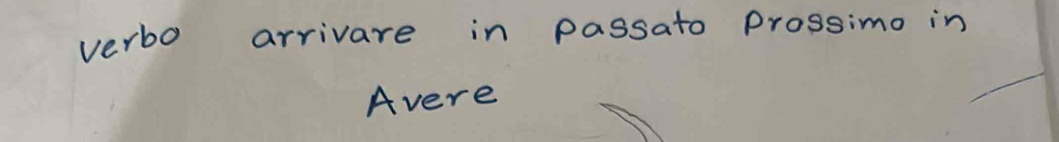 verbo arrivare in passato prossimo in
Avere